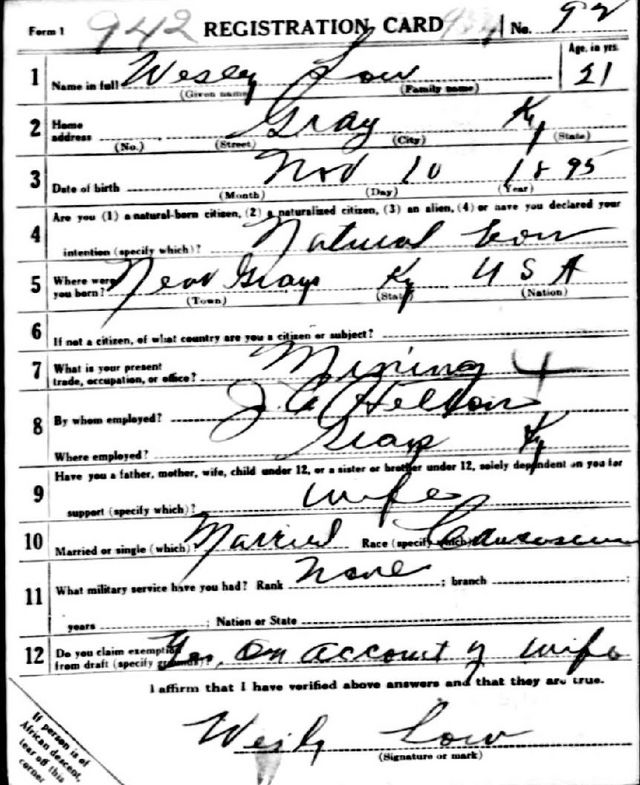 Form 1 942 REGISTRATION CARD No. 92
1 Name in full Wesley Low Age, in yrs. 21
(Given name) (Family name)
2 Home address Gray Ky
(No.) (Street) (City) (State)
3 Date of birth Nov 10 1895
(Month) (Day) (Year)
4 Are you (1) a natural-born citizen, (2) a naturalized citizen, (3) an alien, (4) or have you declared your
intention (specify which)? Natural born
5 Where were you born? Near Grays Ky U S A
(Town) (State) (Nation)
6 If not a citizen, of what country are you a citizen or subject?
7 What is your present trade, occupation, or office? Mining
8 By whom employed? J. Helton
Where employed? Grays Ky
9 Have you a father, mother, wife, child under 12, or a sister or brother under 12, solely dependent on you for
support (specify which)? wife
10 Married or single (which)? Married Race (specify which)? Caucasian
11 What military service have you had? Rank None ; branch ;
years ; Nation or State
12 Do you claim exemption from draft (specify grounds)? Yes, On account of wife
I affirm that I have verified above answers and that they are true.
Wesly Low
(Signature or mark)
If person is of
African descent,
tear off this
corner